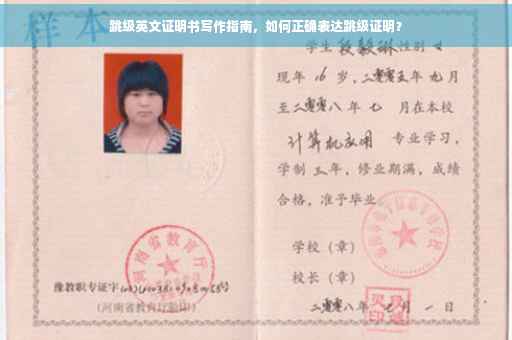 跳级英文证明书写作指南，如何正确表达跳级证明？
样本
学生段毅琳性别女
现年16岁，二零零五年九月
至二零零八年七月在本校
计算机应用 专业学习，
学制三年，修业期满，成绩
合格，准予毕业
学校（章）
校长（章）
二零零八年 月一日
河南省教育厅
豫教职专证字
（河南省教育厅验印）